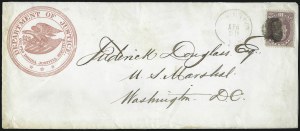 DEPARTMENT OF JUSTICE
Frederick Douglass Esq.
U S Marshal
Washington, D.C.